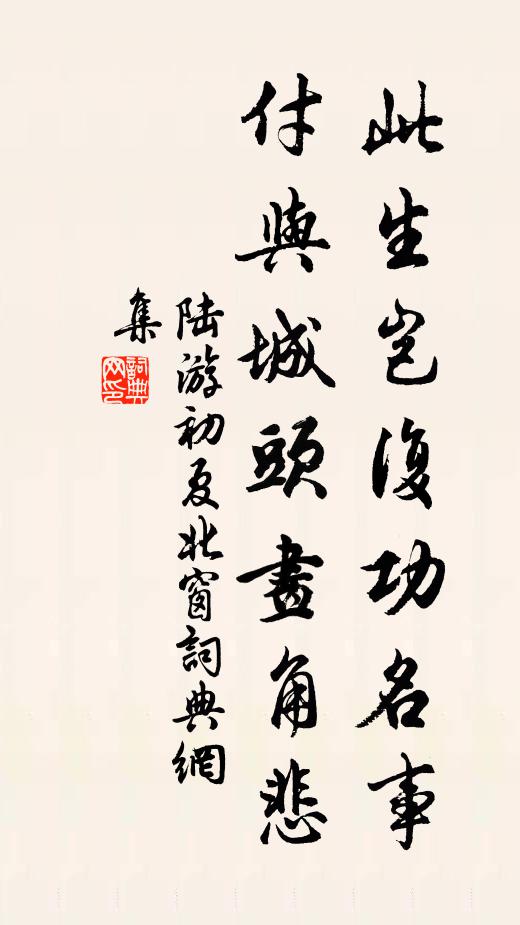 此生豈復功名事
付與城頭畫角悲
陆游初夏北窗詞典網
集
詞典
网印